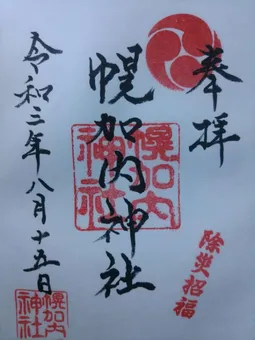 奉拝
幌加内神社
幌加内神社
除災招福
令和三年八月十五日
幌加内神社